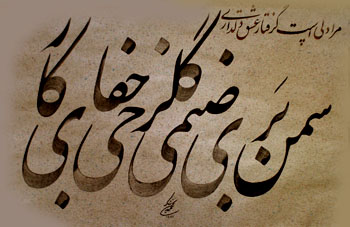 مرا دلی است گرفتار عشق دلداری
سمن بری صنمی گلرخی جفاکاری